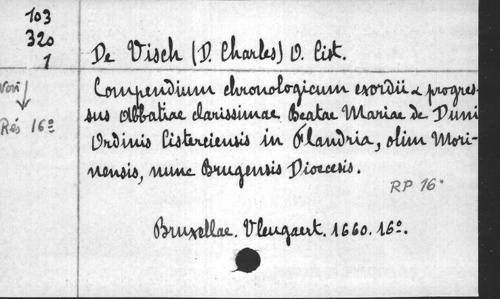 103
320
1
De Visch (D. Charles) O. Cist.
Compendium chronologicum exordii & progres-
sus Abbatiae clarissimae Beatae Mariae de Duni
Ordinis Cisterciensis in Flandria, olim Mori-
nensis, nunc Brugensis Dioecesis.
Voir
Rés 16º
RP 16º
Bruxellae. Vleugaert. 1660. 16º.